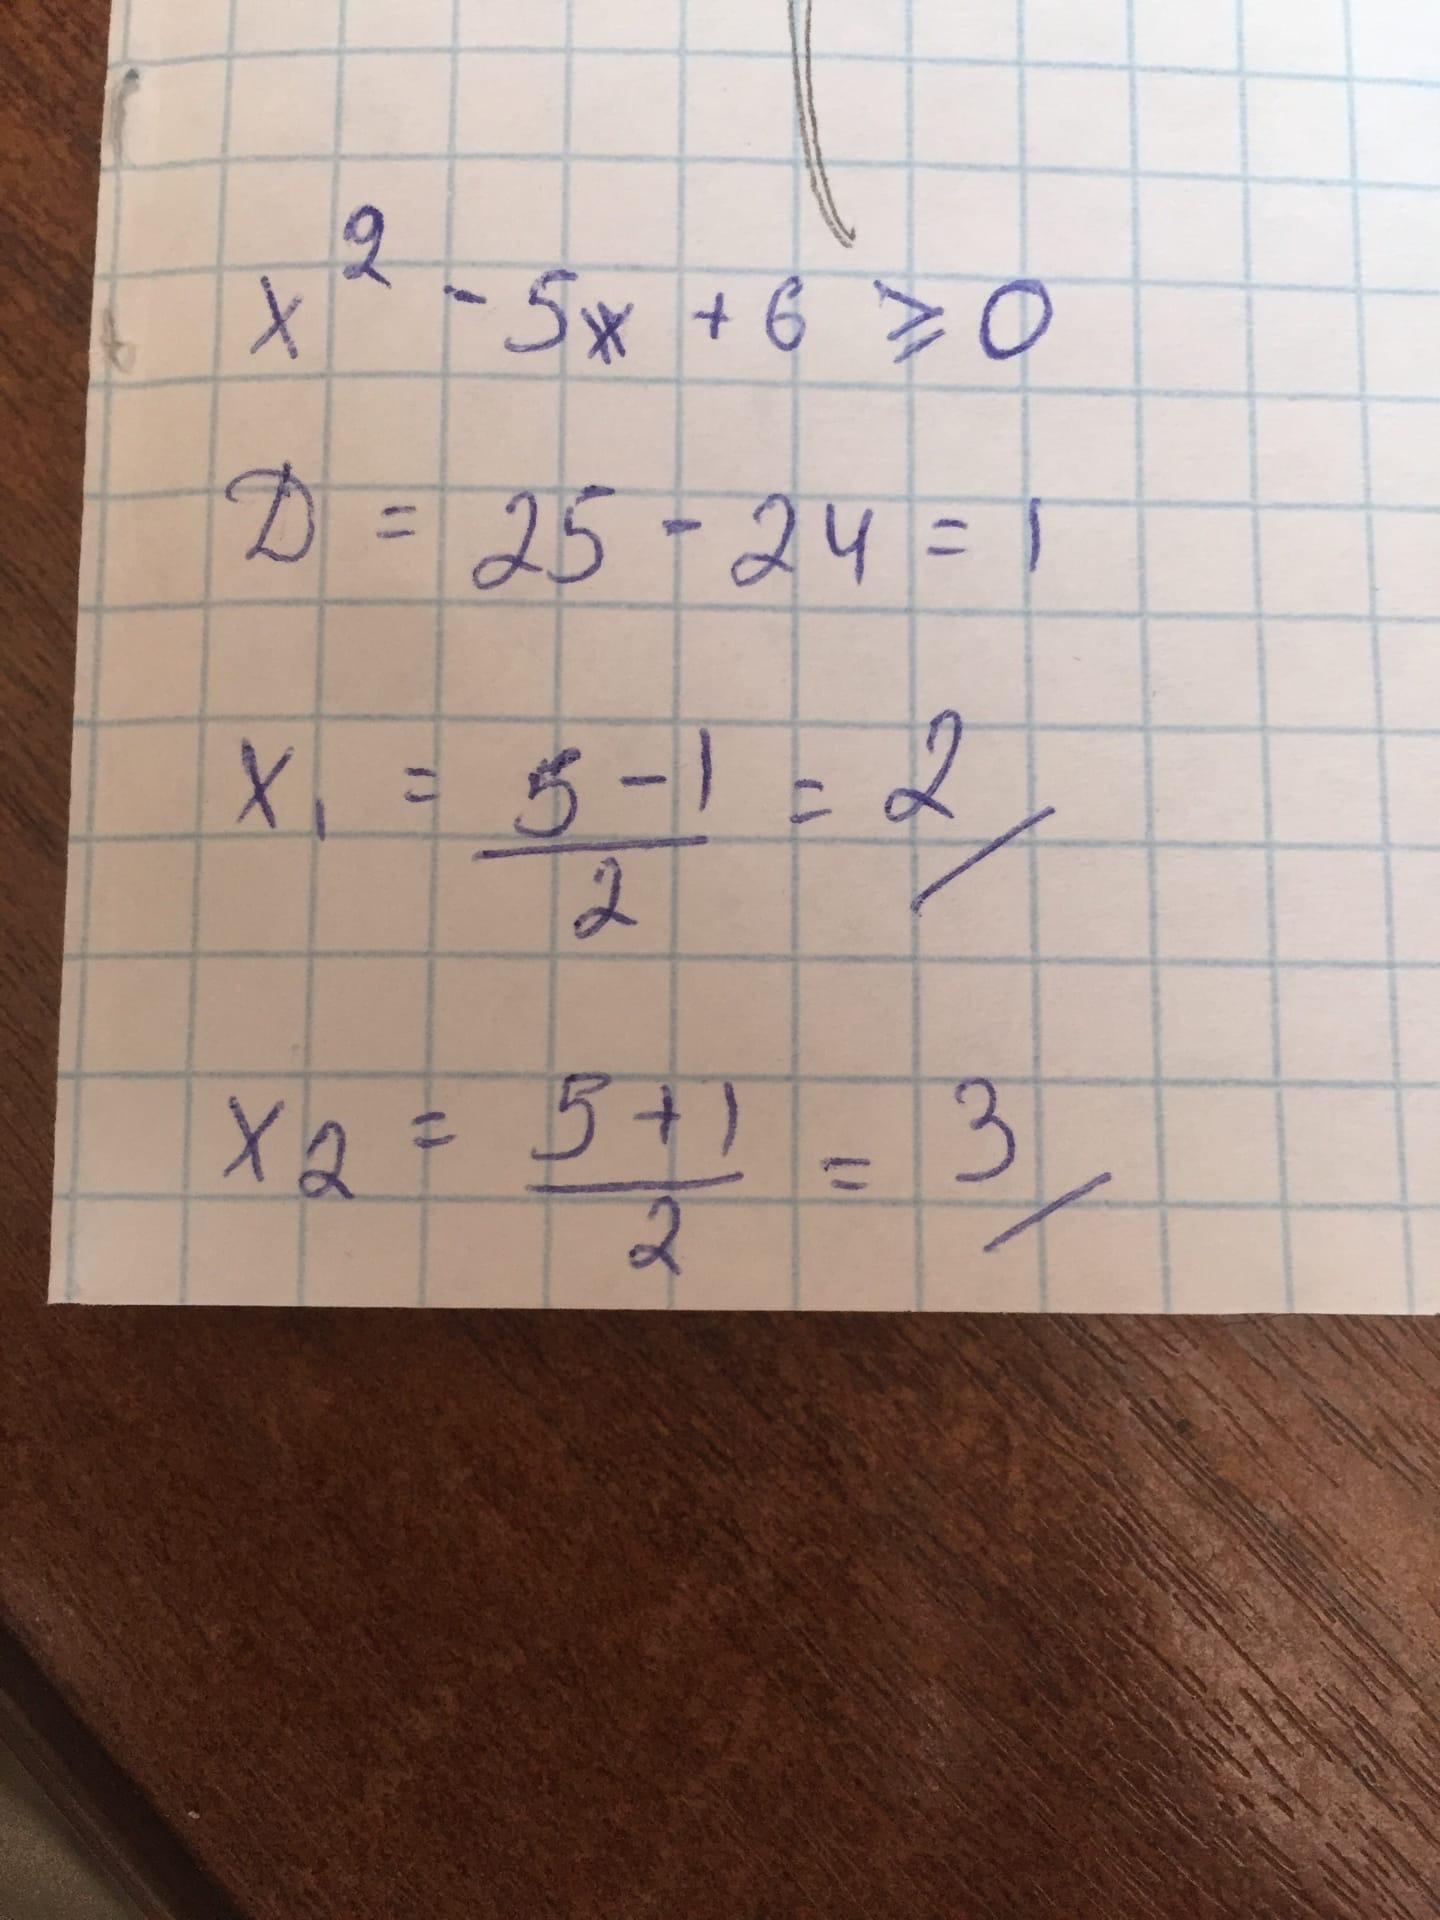 x² - 5x + 6 ⩾ 0
D = 25 - 24 = 1
x₁ = (5 - 1)/2 = 2
x₂ = (5 + 1)/2 = 3